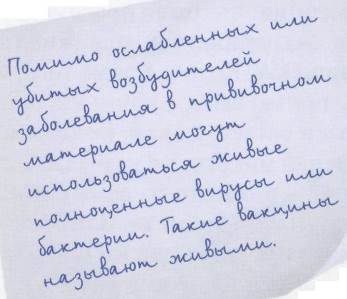 Помимо ослабленных или
убитых возбудителей
заболевания в прививочном
материале могут
использоваться живые
полноценные вирусы или
бактерии. Такие вакцины
называют живыми.